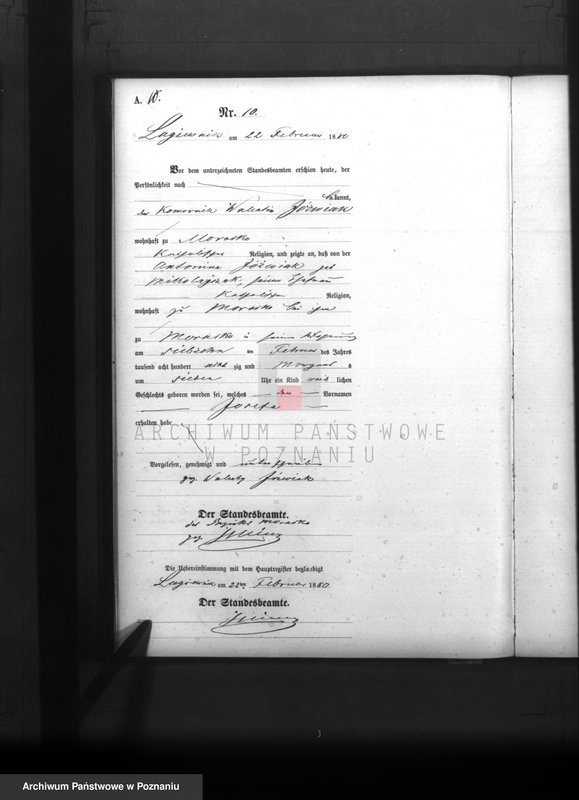 A. 10.
Nr. 10.
Lagiewnik am 22 Februar 1880
Vor dem unterzeichneten Standesbeamten erschien heute, der
Persönlichkeit nach
bekannt,
der Komornik Valentin Jóźwiak
wohnhaft zu Morasko
Katholischer Religion, und zeigte an, daß von der
Antonina Jóźwiak geb
Mikołajczak, seiner Ehefrau
Katholischer Religion,
wohnhaft zu Morasko bei ihm
zu Morasko in seiner Wohnung
am siebzehn ten Februar des Jahres
tausend acht hundert acht zig und Morgens s
um sieben Uhr ein Kind weib lichen
Geschlechts geboren worden sei, welches den Vornamen
Josefa
erhalten habe
ARCHIWUM PAŃSTWOWE
W POZNANIU
Vorgelesen, genehmigt und unterschrieben
gez. Jóźwiak
Der Standesbeamte.
des Bezirks Morasko
gez.
Die Uebereinstimmung mit dem Hauptregister beglaubigt
Lagiewnik am 22ten Februar 1880
Der Standesbeamte.
Archiwum Państwowe w Poznaniu